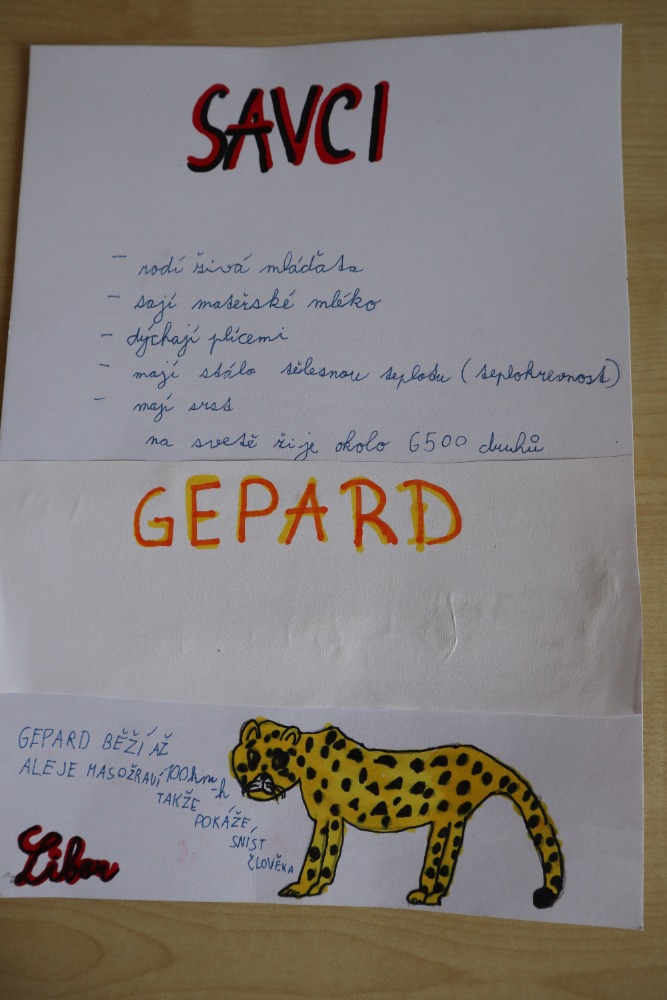 SAVCI
- rodí živá mláďata
- sají mateřské mléko
- dýchají plícemi
- mají stálo tělesnou teplotu (teplokrevnost)
- mají srst
na svetě žije okolo 6500 druhů
GEPARD
GEPARD BĚŽÍ AŽ
100km-h
ALE JE MASOŽRAVÍ
TAKŽE
POKÁŽE
SNÍST
ČLOVĚKA
Libor